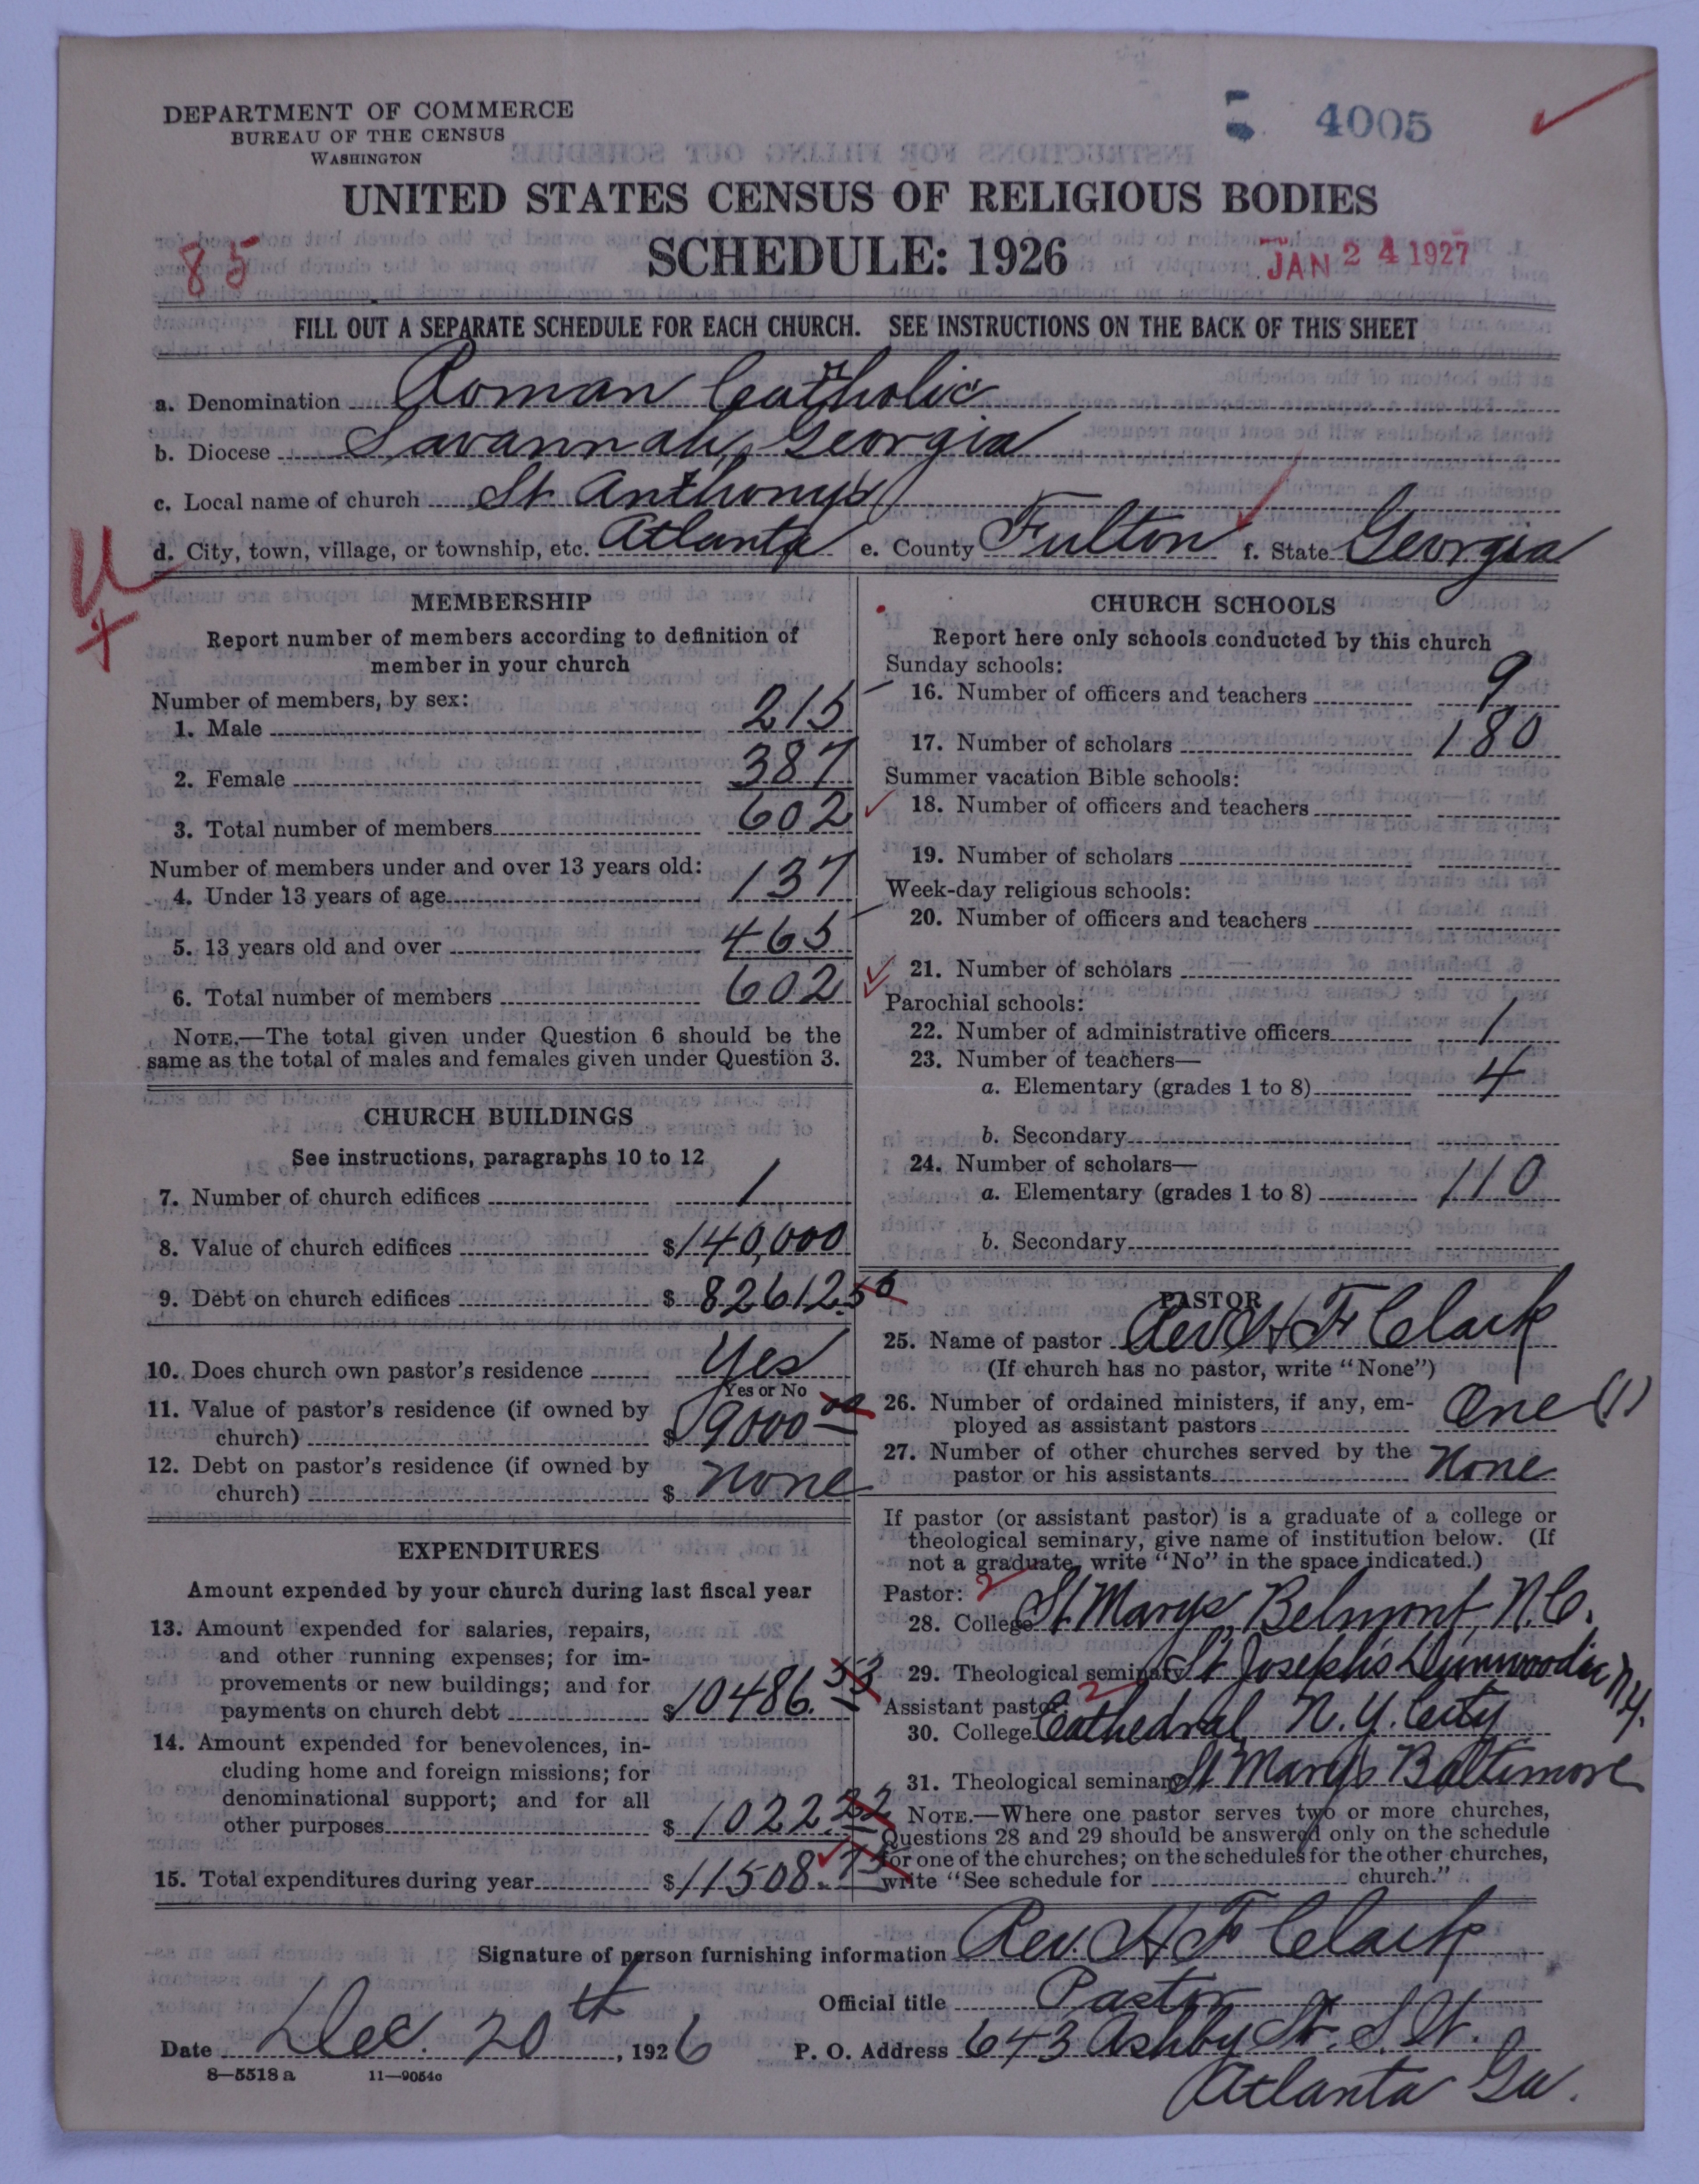 DEPARTMENT OF COMMERCE
BUREAU OF THE CENSUS
WASHINGTON
4005
UNITED STATES CENSUS OF RELIGIOUS BODIES
SCHEDULE: 1926
85
JAN 24 1927
FILL OUT A SEPARATE SCHEDULE FOR EACH CHURCH. SEE INSTRUCTIONS ON THE BACK OF THIS SHEET
a. Denomination Roman Catholic
b. Diocese Savannah, Georgia
c. Local name of church St Anthony's
d. City, town, village, or township, etc. Atlanta e. County Fulton f. State Georgia
MEMBERSHIP
Report number of members according to definition of
member in your church
Number of members, by sex:
1. Male 215
2. Female 387
3. Total number of members 602
Number of members under and over 13 years old:
4. Under 13 years of age 137
5. 13 years old and over 465
6. Total number of members 602
NOTE.—The total given under Question 6 should be the
same as the total of males and females given under Question 3.
CHURCH BUILDINGS
See instructions, paragraphs 10 to 12
7. Number of church edifices 1
8. Value of church edifices $140,000
9. Debt on church edifices $82612.50
10. Does church own pastor's residence Yes
Yes or No
11. Value of pastor's residence (if owned by
church) $9000 00
12. Debt on pastor's residence (if owned by
church) $ none
EXPENDITURES
Amount expended by your church during last fiscal year
13. Amount expended for salaries, repairs,
and other running expenses; for im-
provements or new buildings; and for
payments on church debt $10486.53
14. Amount expended for benevolences, in-
cluding home and foreign missions; for
denominational support; and for all
other purposes $1022.22
15. Total expenditures during year $11508.75
CHURCH SCHOOLS
Report here only schools conducted by this church
Sunday schools:
16. Number of officers and teachers 9
17. Number of scholars 180
Summer vacation Bible schools:
18. Number of officers and teachers
19. Number of scholars
Week-day religious schools:
20. Number of officers and teachers
21. Number of scholars
Parochial schools:
22. Number of administrative officers 1
23. Number of teachers—
a. Elementary (grades 1 to 8) 4
b. Secondary
24. Number of scholars—
a. Elementary (grades 1 to 8) 110
b. Secondary
PASTOR
25. Name of pastor Rev H F Clark
(If church has no pastor, write "None")
26. Number of ordained ministers, if any, em-
ployed as assistant pastors One (1)
27. Number of other churches served by the
pastor or his assistants None
If pastor (or assistant pastor) is a graduate of a college or
theological seminary, give name of institution below. (If
not a graduate, write "No" in the space indicated.)
Pastor: 2
28. College St Marys, Belmont, N.C.
29. Theological seminary St Joseph's Dunwoodie N.Y.
Assistant pastor: 2
30. College Cathedral, N.Y. City
31. Theological seminary St Mary's Baltimore
NOTE.—Where one pastor serves two or more churches,
Questions 28 and 29 should be answered only on the schedule
for one of the churches; on the schedules for the other churches,
write "See schedule for church."
Signature of person furnishing information Rev. H F Clark
Official title Pastor
Date Dec. 20th, 1926 P. O. Address 643 Ashby St. S.W.
8—5518 a 11—9054c
Atlanta Ga.